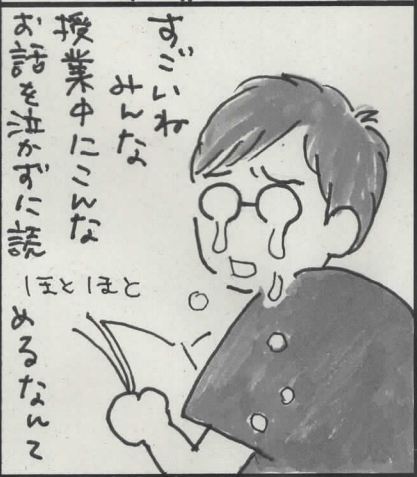 すごいね
みんな
授業中にこんな
お話を泣かずに読
めるなんて
ほとほと